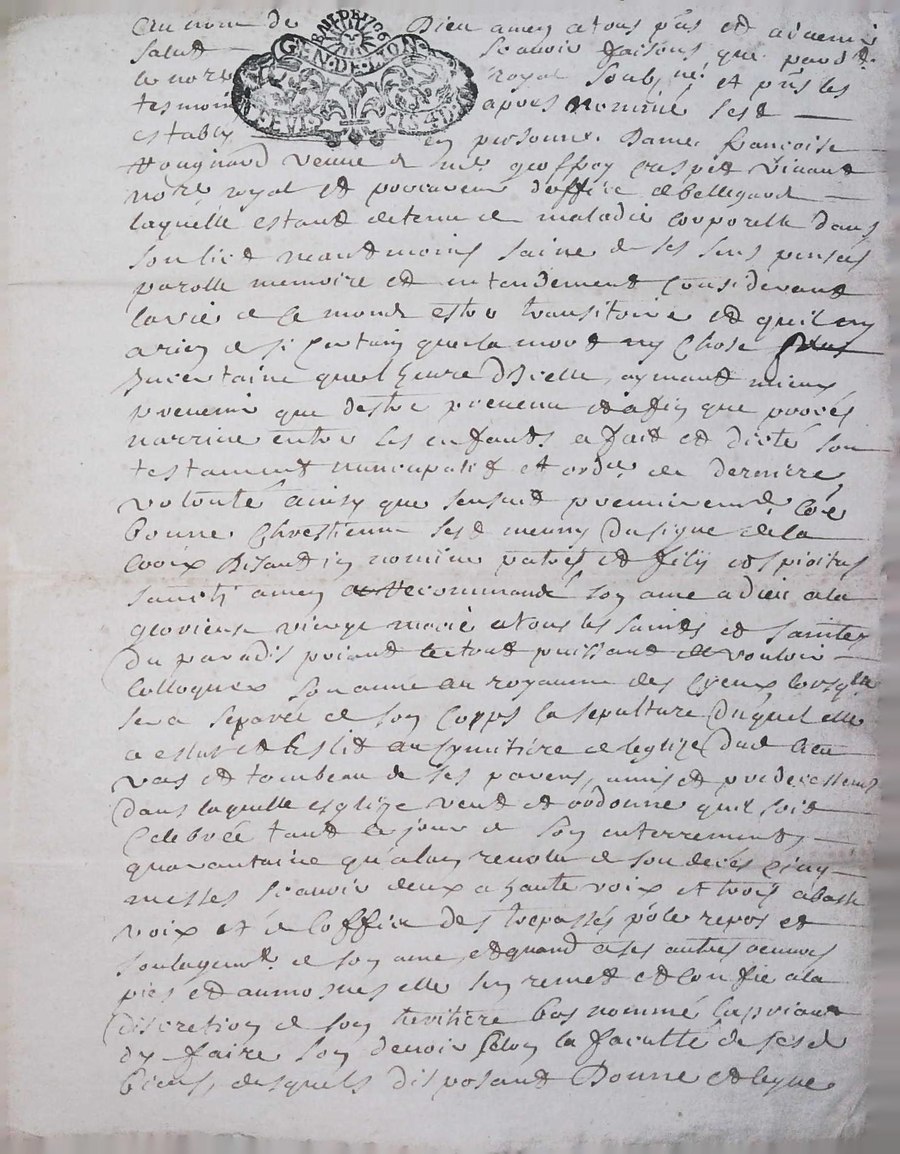 Au nom de Dieu amen a tous pñs et advenir
BAIL DE 1706
GEN·DE·LYON
salut scavoir faisons que pard.t
le no.re royal soubz.né et pñs les
tesmoins apres nommes sest
establye en personne Dame francoise
veuve de me geoffroy crespet vivant
no.re royal et procureur d'office de bellegarde
laquelle estant detenue de maladie corporelle dans
son lict neantmoins saine de ses sens pensées
parolle memoire et entendement considerant
la vie de ce monde estre transitoire et quil ny
a rien de si certain que la mort ny chose plus
Incertaine que lheure dicelle, aymant mieux
prevenir que destre prevenue et afin que procés
narrive entre les enfants a fait et dicté son
testament nuncupatif et ord.ce de derniere
volonté ainsy que sensuit premierement co.e
bonne chrestienne sest munye du signe de la
croix disant in nomine patris et filij et spiritus
sancti amen recommandé son ame a dieu a la
glorieuse vierge marie a tous les saints et saintes
du paradis priant le tout puissant de vouloir
colloquer son ame au royaume des cyeux lorsq.lle
sera separée de son corps la sepulture duquel elle
a eslut et Eslit au cymitiere de leglize dud. lieu
vas et tombeau de ses parens, amis et predecesseurs
dans laquelle esglize veut et ordonne quil soit
celebrée tant le jour de son enterrement,
quarantaine qu'a lan revolu de son decés cinq
messes scavoir deux a haute voix et trois a basse
voix et de loffice des trepassés p̃ le repos et
soulagem.t de son ame, et quand a ses autres oeuvres
pies et aumosnes elle sen remet et confie a la
discretion de son heritiere bas nommé la priant
dy faire son devoir selon la faculté de sesd.
biens, desquels disposant Donne et legue